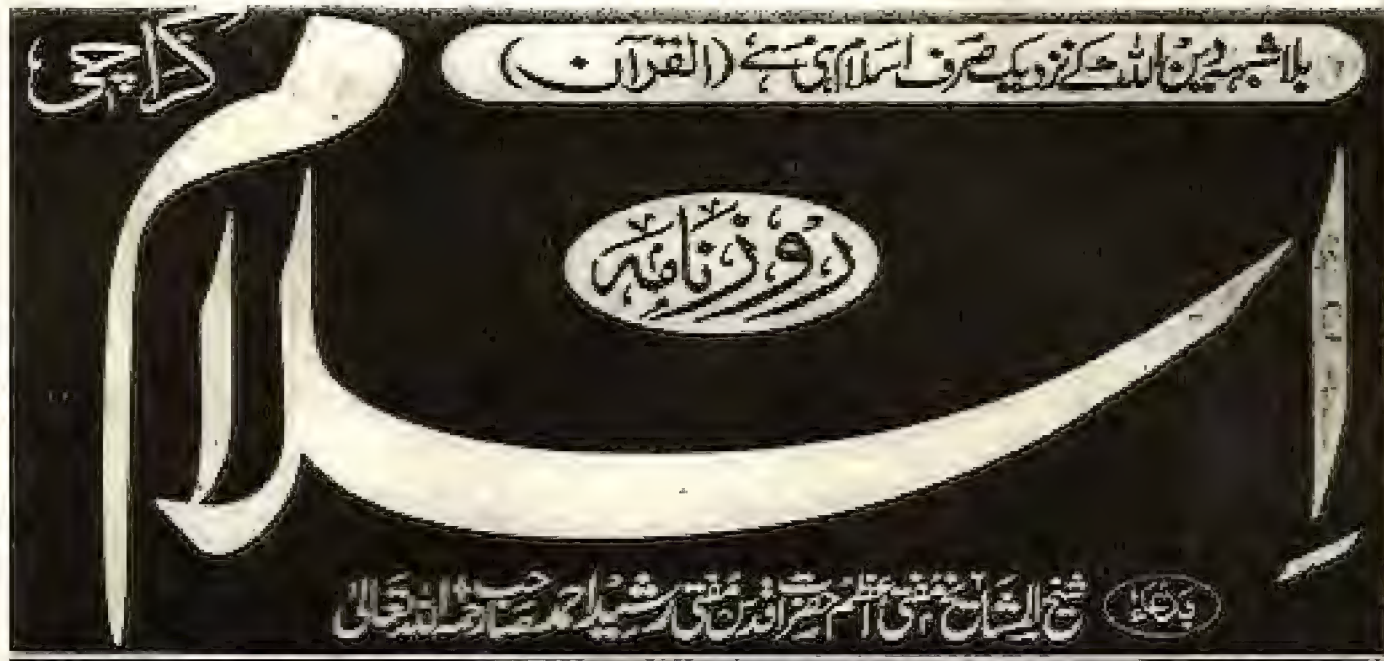 بلا شبہ دین اللہ کے نزدیک صرف اسلام ہی ہے (القرآن)
کراچی
روزنامہ
اسلام
شیخ المشائخ مفتی اعظم حضرت اقدس مفتی رشید احمد صاحب رحمہ اللہ تعالیٰ